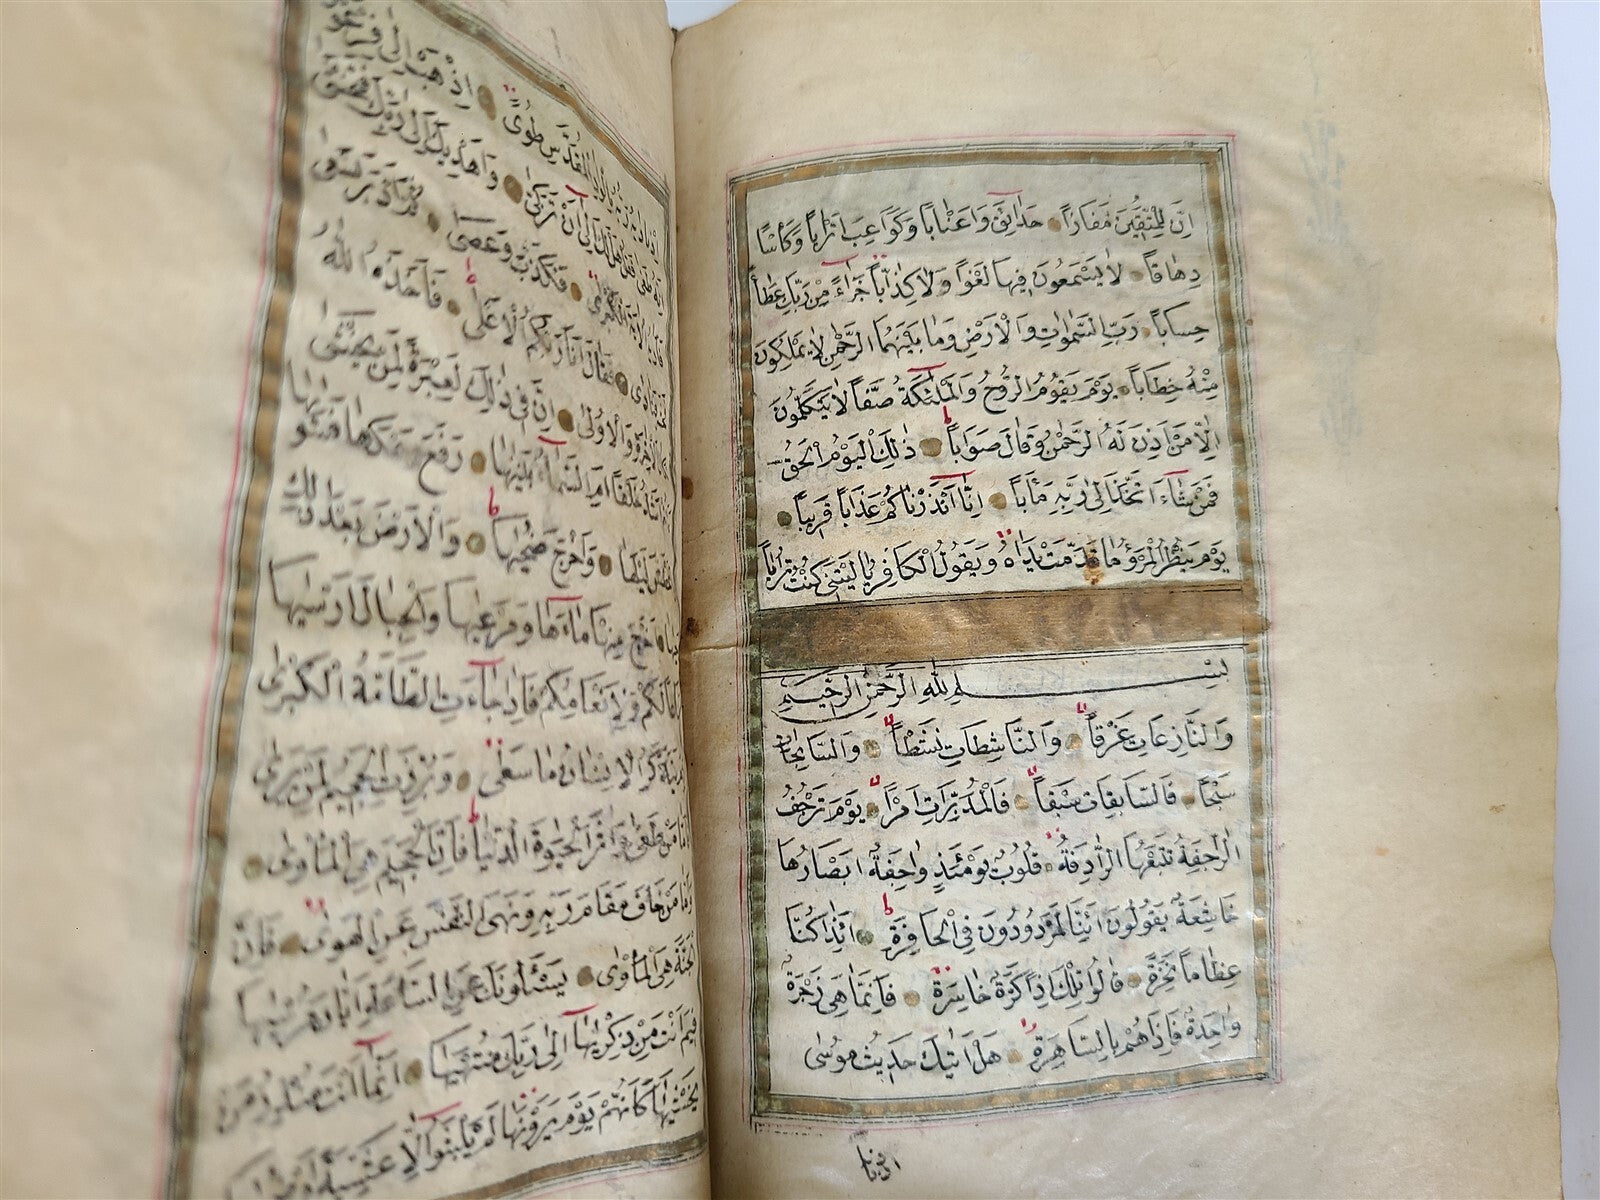 اِنَّ لِلْمُتَّقِينَ مَفَازًا حَدَائِقَ وَاَعْنَابًا وَكَوَاعِبَ اَتْرَابًا وَكَأْسًا
دِهَاقًا لَا يَسْمَعُونَ فِيهَا لَغْوًا وَلَا كِذَّابًا جَزَاءً مِنْ رَبِّكَ عَطَاءً
حِسَابًا رَبِّ السَّمٰوَاتِ وَالْاَرْضِ وَمَا بَيْنَهُمَا الرَّحْمٰنِ لَا يَمْلِكُونَ
مِنْهُ خِطَابًا يَوْمَ يَقُومُ الرُّوحُ وَالْمَلٰئِكَةُ صَفًّا لَا يَتَكَلَّمُونَ
اِلَّا مَنْ اَذِنَ لَهُ الرَّحْمٰنُ وَقَالَ صَوَابًا ذٰلِكَ الْيَوْمُ الْحَقُّ
فَمَنْ شَاءَ اتَّخَذَ اِلٰى رَبِّهِ مَاٰبًا اِنَّا اَنْذَرْنَاكُمْ عَذَابًا قَرِيبًا
يَوْمَ يَنْظُرُ الْمَرْءُ مَا قَدَّمَتْ يَدَاهُ وَيَقُولُ الْكَافِرُ يَا لَيْتَنِي كُنْتُ تُرَابًا
بِسْمِ اللّٰهِ الرَّحْمٰنِ الرَّحِيمِ
وَالنَّازِعَاتِ غَرْقًا وَالنَّاشِطَاتِ نَشْطًا وَالسَّابِحَاتِ
سَبْحًا فَالسَّابِقَاتِ سَبْقًا فَالْمُدَبِّرَاتِ اَمْرًا يَوْمَ تَرْجُفُ
الرَّاجِفَةُ تَتْبَعُهَا الرَّادِفَةُ قُلُوبٌ يَوْمَئِذٍ وَاجِفَةٌ اَبْصَارُهَا
خَاشِعَةٌ يَقُولُونَ اَئِنَّا لَمَرْدُودُونَ فِي الْحَافِرَةِ اَئِذَا كُنَّا
عِظَامًا نَخِرَةً قَالُوا تِلْكَ اِذًا كَرَّةٌ خَاسِرَةٌ فَاِنَّمَا هِيَ زَجْرَةٌ
وَاحِدَةٌ فَاِذَا هُمْ بِالسَّاهِرَةِ هَلْ اَتٰيكَ حَدِيثُ مُوسٰى
اِذْ نَا
بِالْوَادِ الْمُقَدَّسِ طُوًى اِذْهَبْ اِلٰى
فَقُلْ هَلْ لَكَ اِلٰى اَنْ تَزَكّٰى وَاَهْدِيَكَ اِلٰى رَبِّكَ فَتَخْشٰى
الْكُبْرٰى فَكَذَّبَ وَعَصٰى ثُمَّ اَدْبَرَ يَسْعٰى
فَنَادٰى فَقَالَ اَنَا رَبُّكُمُ الْاَعْلٰى فَاَخَذَهُ اللّٰهُ
وَالْاُولٰى اِنَّ فِي ذٰلِكَ لَعِبْرَةً لِمَنْ يَخْشٰى
خَلْقًا اَمِ السَّمَاءُ بَنٰيهَا رَفَعَ سَمْكَهَا فَسَوّٰيهَا
وَاَخْرَجَ ضُحٰيهَا وَالْاَرْضَ بَعْدَ ذٰلِكَ
مِنْهَا مَاءَهَا وَمَرْعٰيهَا وَالْجِبَالَ اَرْسٰيهَا
لَكُمْ وَلِاَنْعَامِكُمْ فَاِذَا جَاءَتِ الطَّامَّةُ الْكُبْرٰى
يَتَذَكَّرُ الْاِنْسَانُ مَا سَعٰى وَبُرِّزَتِ الْجَحِيمُ لِمَنْ يَرٰى
مَنْ طَغٰى وَاٰثَرَ الْحَيٰوةَ الدُّنْيَا فَاِنَّ الْجَحِيمَ هِيَ الْمَأْوٰى
مَنْ خَافَ مَقَامَ رَبِّهِ وَنَهَى النَّفْسَ عَنِ الْهَوٰى فَاِنَّ
الْجَنَّةَ هِيَ الْمَأْوٰى يَسْئَلُونَكَ عَنِ السَّاعَةِ اَيَّانَ مُرْسٰيهَا
فِيمَ اَنْتَ مِنْ ذِكْرٰيهَا اِلٰى رَبِّكَ مُنْتَهٰيهَا اِنَّمَا اَنْتَ مُنْذِرُ مَنْ
يَخْشٰيهَا كَاَنَّهُمْ يَوْمَ يَرَوْنَهَا لَمْ يَلْبَثُوا اِلَّا عَشِيَّةً اَوْ